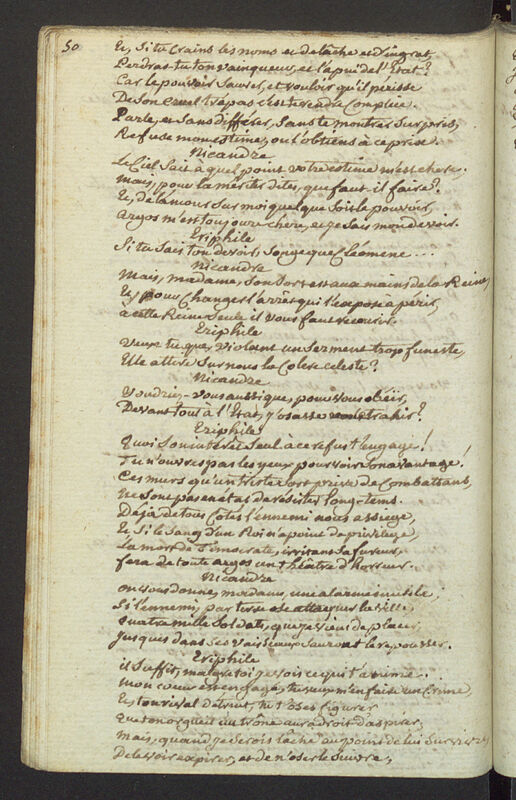 50
Et, si tu crains les noms et de lâche et d'ingrat,
Perdras-tu ton vainqueur, et l'apui de l'État?
Car le pouvoir sauver, et vouloir qu'il perisse
De son cruel trépas c'est se rendre complice.
Parle, et sans differer, sans te montrer surpris,
Refuse mon estime, ou l'obtiens à ce prix.
Nicandre
Le Ciel sait à quel point votre estime m'est chere.
Mais, pour la mériter dites, que faut-il faire?
Et, de l'amour sur moi quel que soit le pouvoir,
Argos m'est toujours chere, et je sais mon devoir.
Eriphile
Si tu sais ton devoir, songe que Cléomene...
Nicandre
Mais, madame, son sort est aux mains de la Reine,
Et, pour changer l'arrêt qui l'expose à perir,
à cette Reine seule il vous faut recourir.
Eriphile
Veux-tu que, violant un serment trop funeste,
Elle attire sur nous la colere celeste?
Nicandre
Voudriez-vous aussi que, pour vous obéir,
Devant tout à l'État, j'osasse le trahir?
Eriphile
Quoi son interêt seul à ce refus t'engage!
Tu n'ouvres pas les yeux pour voir son avantage!
Ces murs qu'un triste sort prive de combattans,
Ne sont pas en etat de resister long-tems.
Déja de tous cotés l'ennemi nous assiege,
Et si le sang d'un Roi n'a point de privilege,
La mort de Timocrate, irritant sa fureur,
fera de toute argos un théatre d'horreur.
Nicandre
on vous donne, madame, une alarme inutile,
Si l'ennemi, par terre ose attaquer la ville,
quatre mille soldats, que je viens de placer,
jusques dans ses vaisseaux sauront le repousser.
Eriphile
il suffit, malgré toi je vois ce qui t'anime.
mon cœur est engagé, tu veux m'en faire un crime,
Et, ton rival détruit, tu t'oses figurer
que ton orgueil au trône aura droit d'aspirer,
mais, quand je serois lâche au point de lui survivre,
De le voir expirer, et de n'oser le suivre,